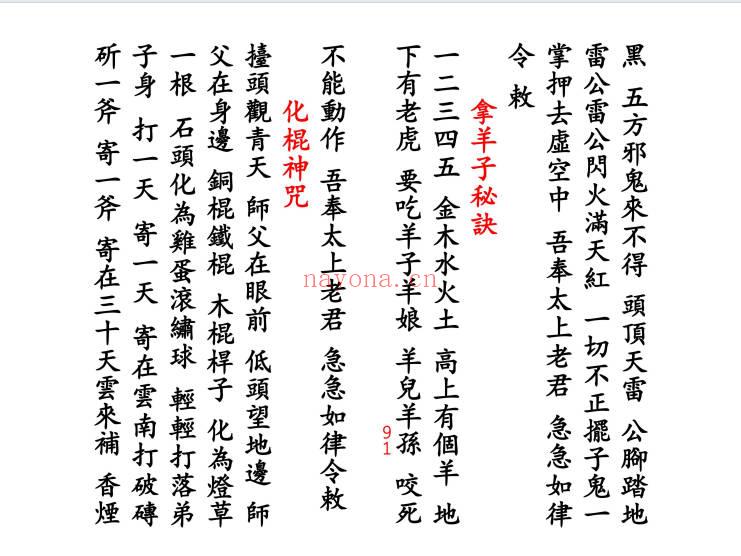 黑 五方邪鬼來不得 頭頂天雷 公腳踏地
雷公雷公閃火滿天紅 一切不正擺子鬼一
掌押去虛空中 吾奉太上老君 急急如律
令 敕
拿羊子秘訣
一二三四五 金木水火土 高上有個羊 地
下有老虎 要吃羊子羊娘 羊兒羊孫 咬死
不能動作 吾奉太上老君 急急如律令敕
化棍神咒
擡頭觀青天 師父在眼前 低頭望地邊 師
父在身邊 銅棍鐵棍 木棍桿子 化為燈草
一根 石頭化為雞蛋滾繡球 輕輕打落弟
子身 打一天 寄一天 寄在雲南打破磚
斫一斧 寄一斧 寄在三十天雲來補 香煙
91
nayona.cn